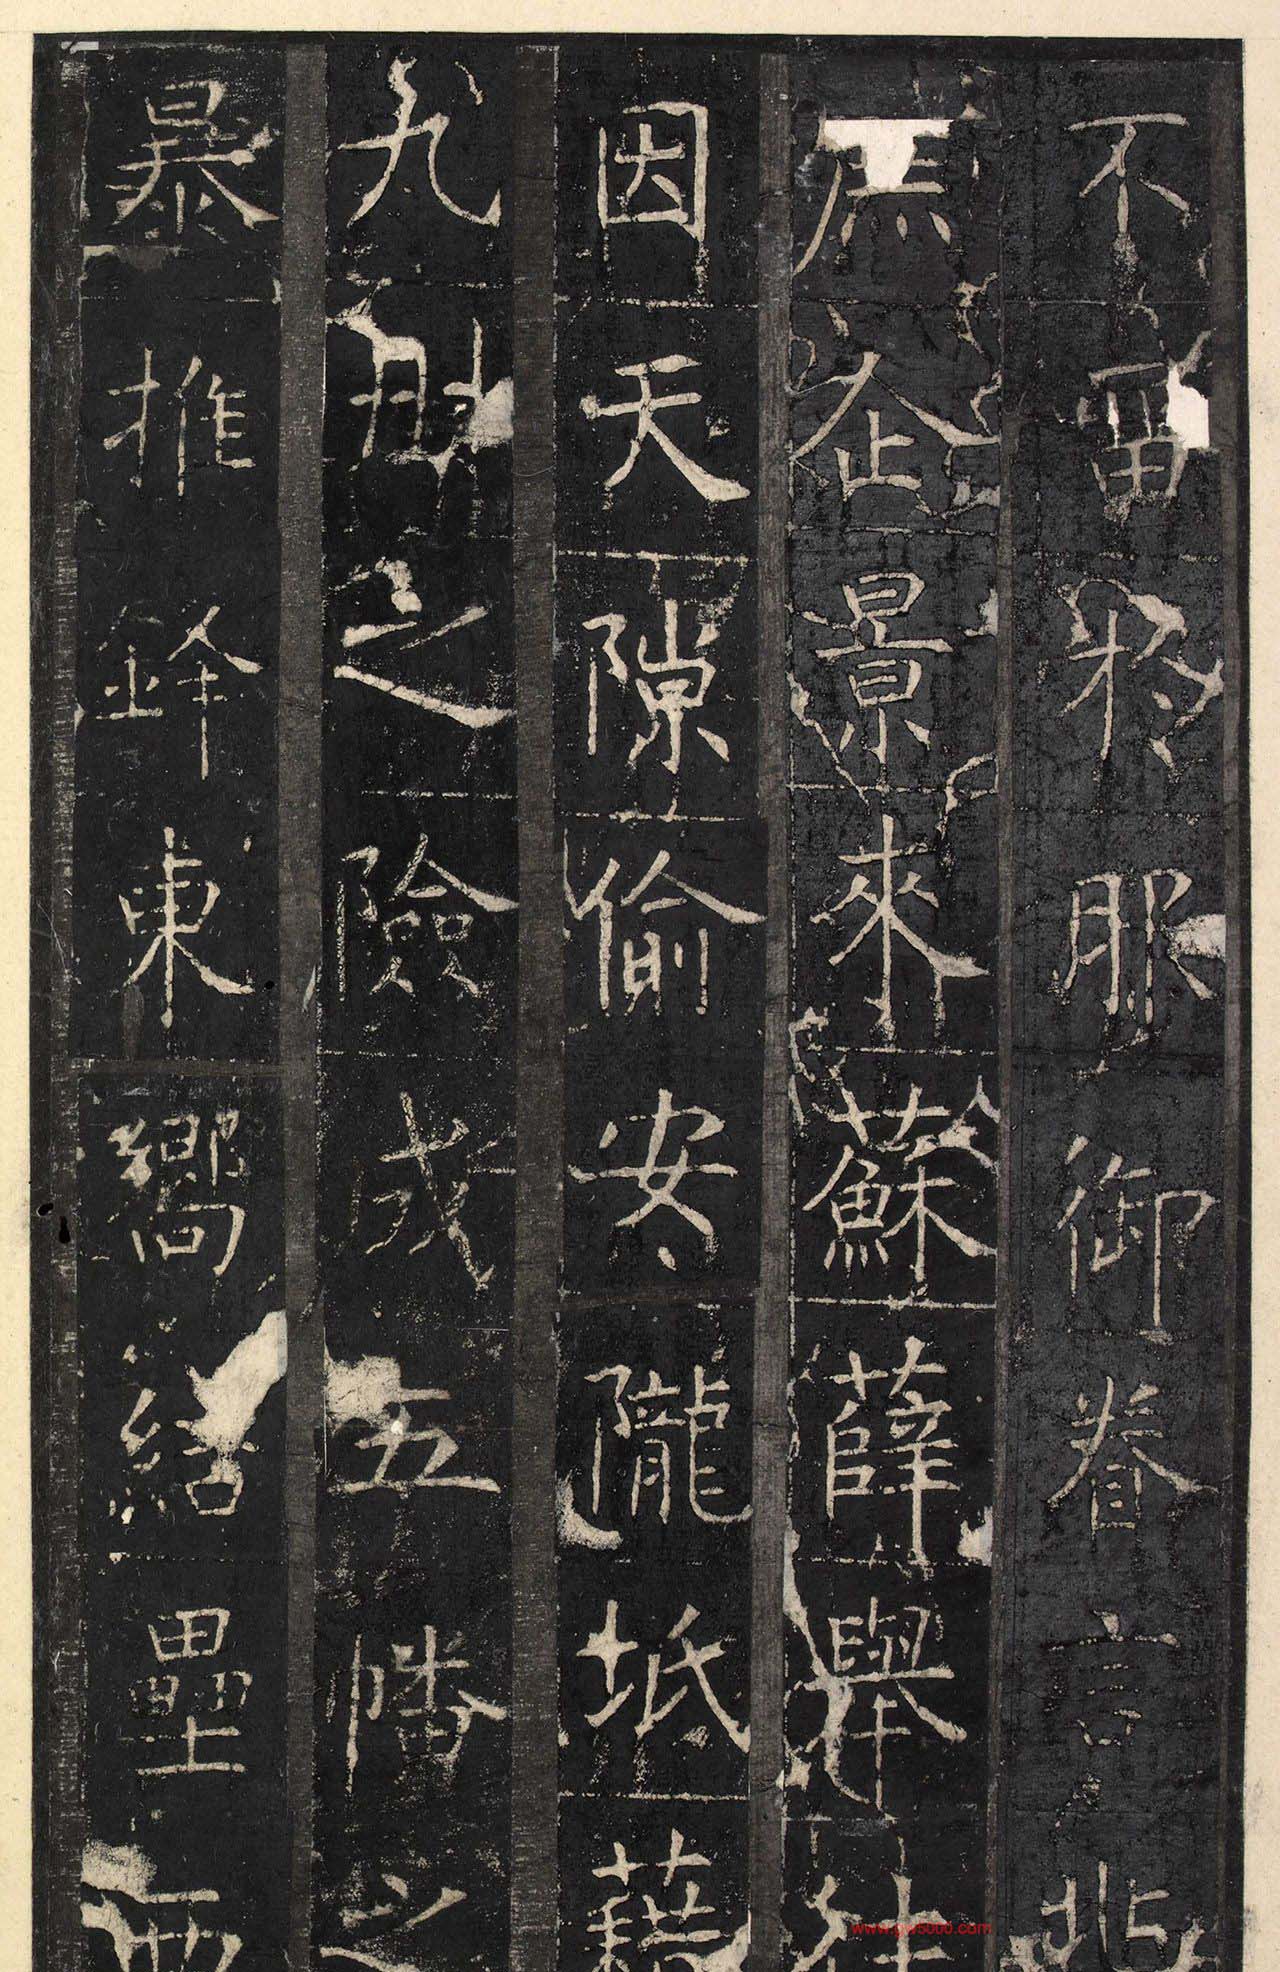 不留於服御眷言兆
庶企景來蘇薛舉
因天隙偷安隴坻藉
九州之險成五幡之
暴推鋒東嚮結壘西
www.gw5000.com